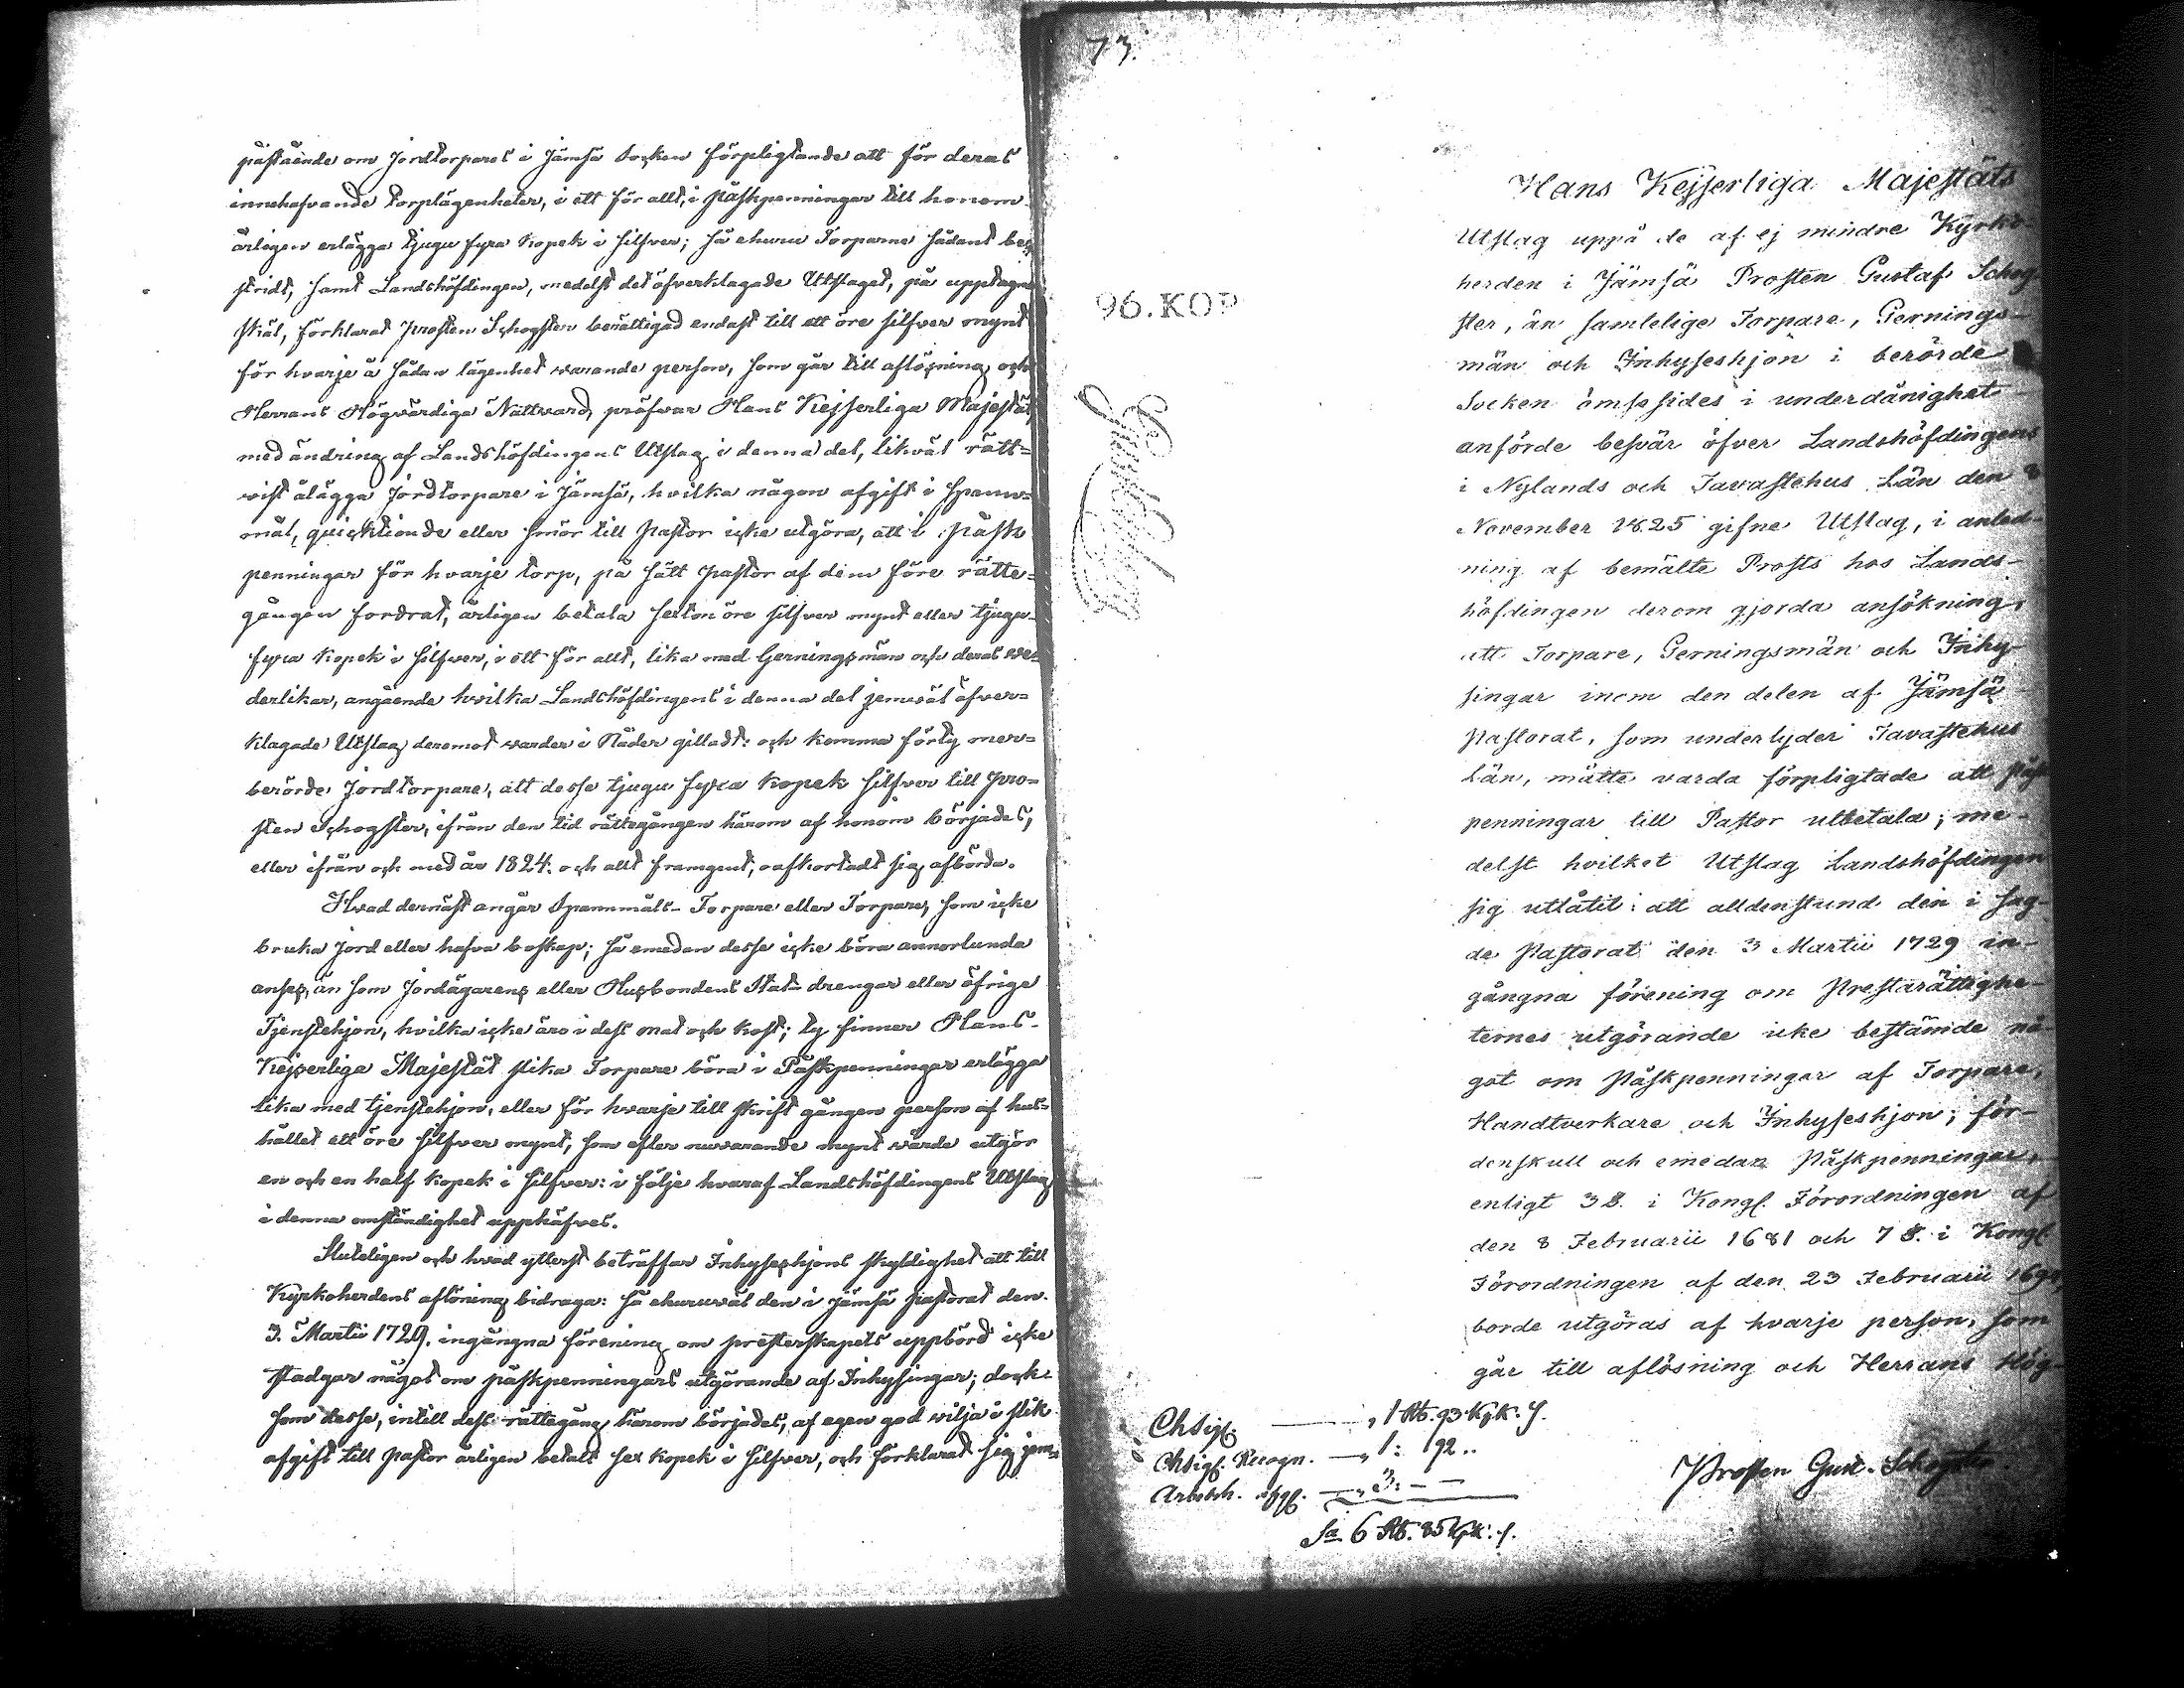 påstående om Jordtorpares i Jämsä Socken förpligtande att för deras
innehafvande torplägenheter, i ett för allt, i Påskpenningar till honom
årligen erlägga tjugu fyra Kopek i silfver; så ehuru Torparne sådant be=
stridt, samt Landshöfdingen, medelst det öfverklagade Utslaget, på upptagne
skäl, förklarat Prosten Schogster berättigad endast till ett öre silfver mynt
för hvarje å sådan lägenhet warande person, som går till aflösning och
Herrans Högvärdiga Nattvard, pröfvar Hans Kejserliga Majestät,
med ändring af Landshöfdingens Utslag i denna del, likväl rätt=
vist ålägga Jordtorpare i Jämsä, hvilka någon afgift i Spanne=
mål, quicktionde eller smör till Pastor icke utgöra, att i Påsk
penningar för hvarje torp, på sätt Pastor af dem före rätte=
gången fordrat, årligen betala sexton öre silfver mynt eller tjugu
fyra Kopek i silfver, i ett för allt, lika med Gerningsmän och deras we=
derlikar, angående hvilka Landshöfdingens i denna del jemväl öfver=
klagade Utslag deremot warder i Nåder gilladt: och komma förty mer=
berörde Jordtorpare, att desse tjugu fyra Kopek silfver till Pro=
sten Schogster, ifrån den tid rättegången härom af honom börjades,
eller ifrån och med år 1824. och allt framgent, oafkortadt sig afbörda.
Hvad dernäst angår Spannmåls-Torpare eller Torpare, som icke
bruka jord eller hafva boskap; så emedan desse icke böra annorlunda
anses, än som Jordägarens eller Husbondens Stat-drengar eller öfrige
Tjenstehjon, hvilka icke äro i dess mat och kost; ty finner Hans
Kejserliga Majestät slika Torpare böra i Påskpenningar erlägga
lika med tjenstehjon, eller för hvarje till skrift gången person af hus=
hållet ett öre silfver mynt, som efter nuvarande mynt wärde utgör
en och en half Kopek i silfver: i följe hvaraf Landshöfdingens Utslag
i denna omständighet upphäfves.
Sluteligen och hvad ytterst beträffar Inhyseshjons skyldighet att till
Kyrkoherdens aflöning bidraga: så ehuruväl den i Jämsä Pastorat den
3. Martii 1729. ingångna förening om presterskapets uppbörd icke
stadgar något om påskpenningars utgörande af Inhysingar; dock
som desse, intill dess rättegång härom börjades, af egen god wilja i slik
afgift till Pastor årligen betalt sex Kopek i silfver, och förklarat sig jem=
73.
96.KOP
Hans Kejserliga Majestäts
Utslag uppå de af ej mindre Kyrko-
herden i Jämsä Prosten Gustaf Schog-
ster, än samtelige Torpare, Gernings-
män och Inhyseshjon i berörde
Socken ömsesides i underdånighet
anförde besvär öfver Landshöfdingens
i Nylands och Tavastehus Län den 8
November 1825 gifne Utslag, i anled-
ning af bemälte Prosts hos Lands-
höfdingen derom gjorda ansökning,
att Torpare, Gerningsmän och Inhy-
singar inom den delen af Jämsä
Pastorat, som underlyder Tavastehus
Län, måtte varda förpligtade att Påsk
penningar till Pastor utbetala; me-
delst hvilket Utslag Landshöfdingen
sig utlåtit: att alldenstund den i sag-
de Pastorat den 3 Martii 1729 in-
gångna förening om Prestarättighe-
ternes utgörande icke bestämde nå-
got om Påskpenningar af Torpare,
Handtverkare och Inhyseshjon; för-
denskull och emedan Påskpenningar,
enligt 3 §. i Kongl. Förordningen af
den 8 Februarii 1681 och 7 §. i Kongl.
Förordningen af den 23 Februarii
borde utgöras af hvarje person, som
går till aflösning och Herrans Hög-
Chsigl. — „ 1 Rb. 93 Kpk. S.
Chsigl. Recogn. — „ 1: 92 ..
— „ 3: — —
Sa 6 Rb. 85 Kpk. S.
Prosten Gust. Schogster